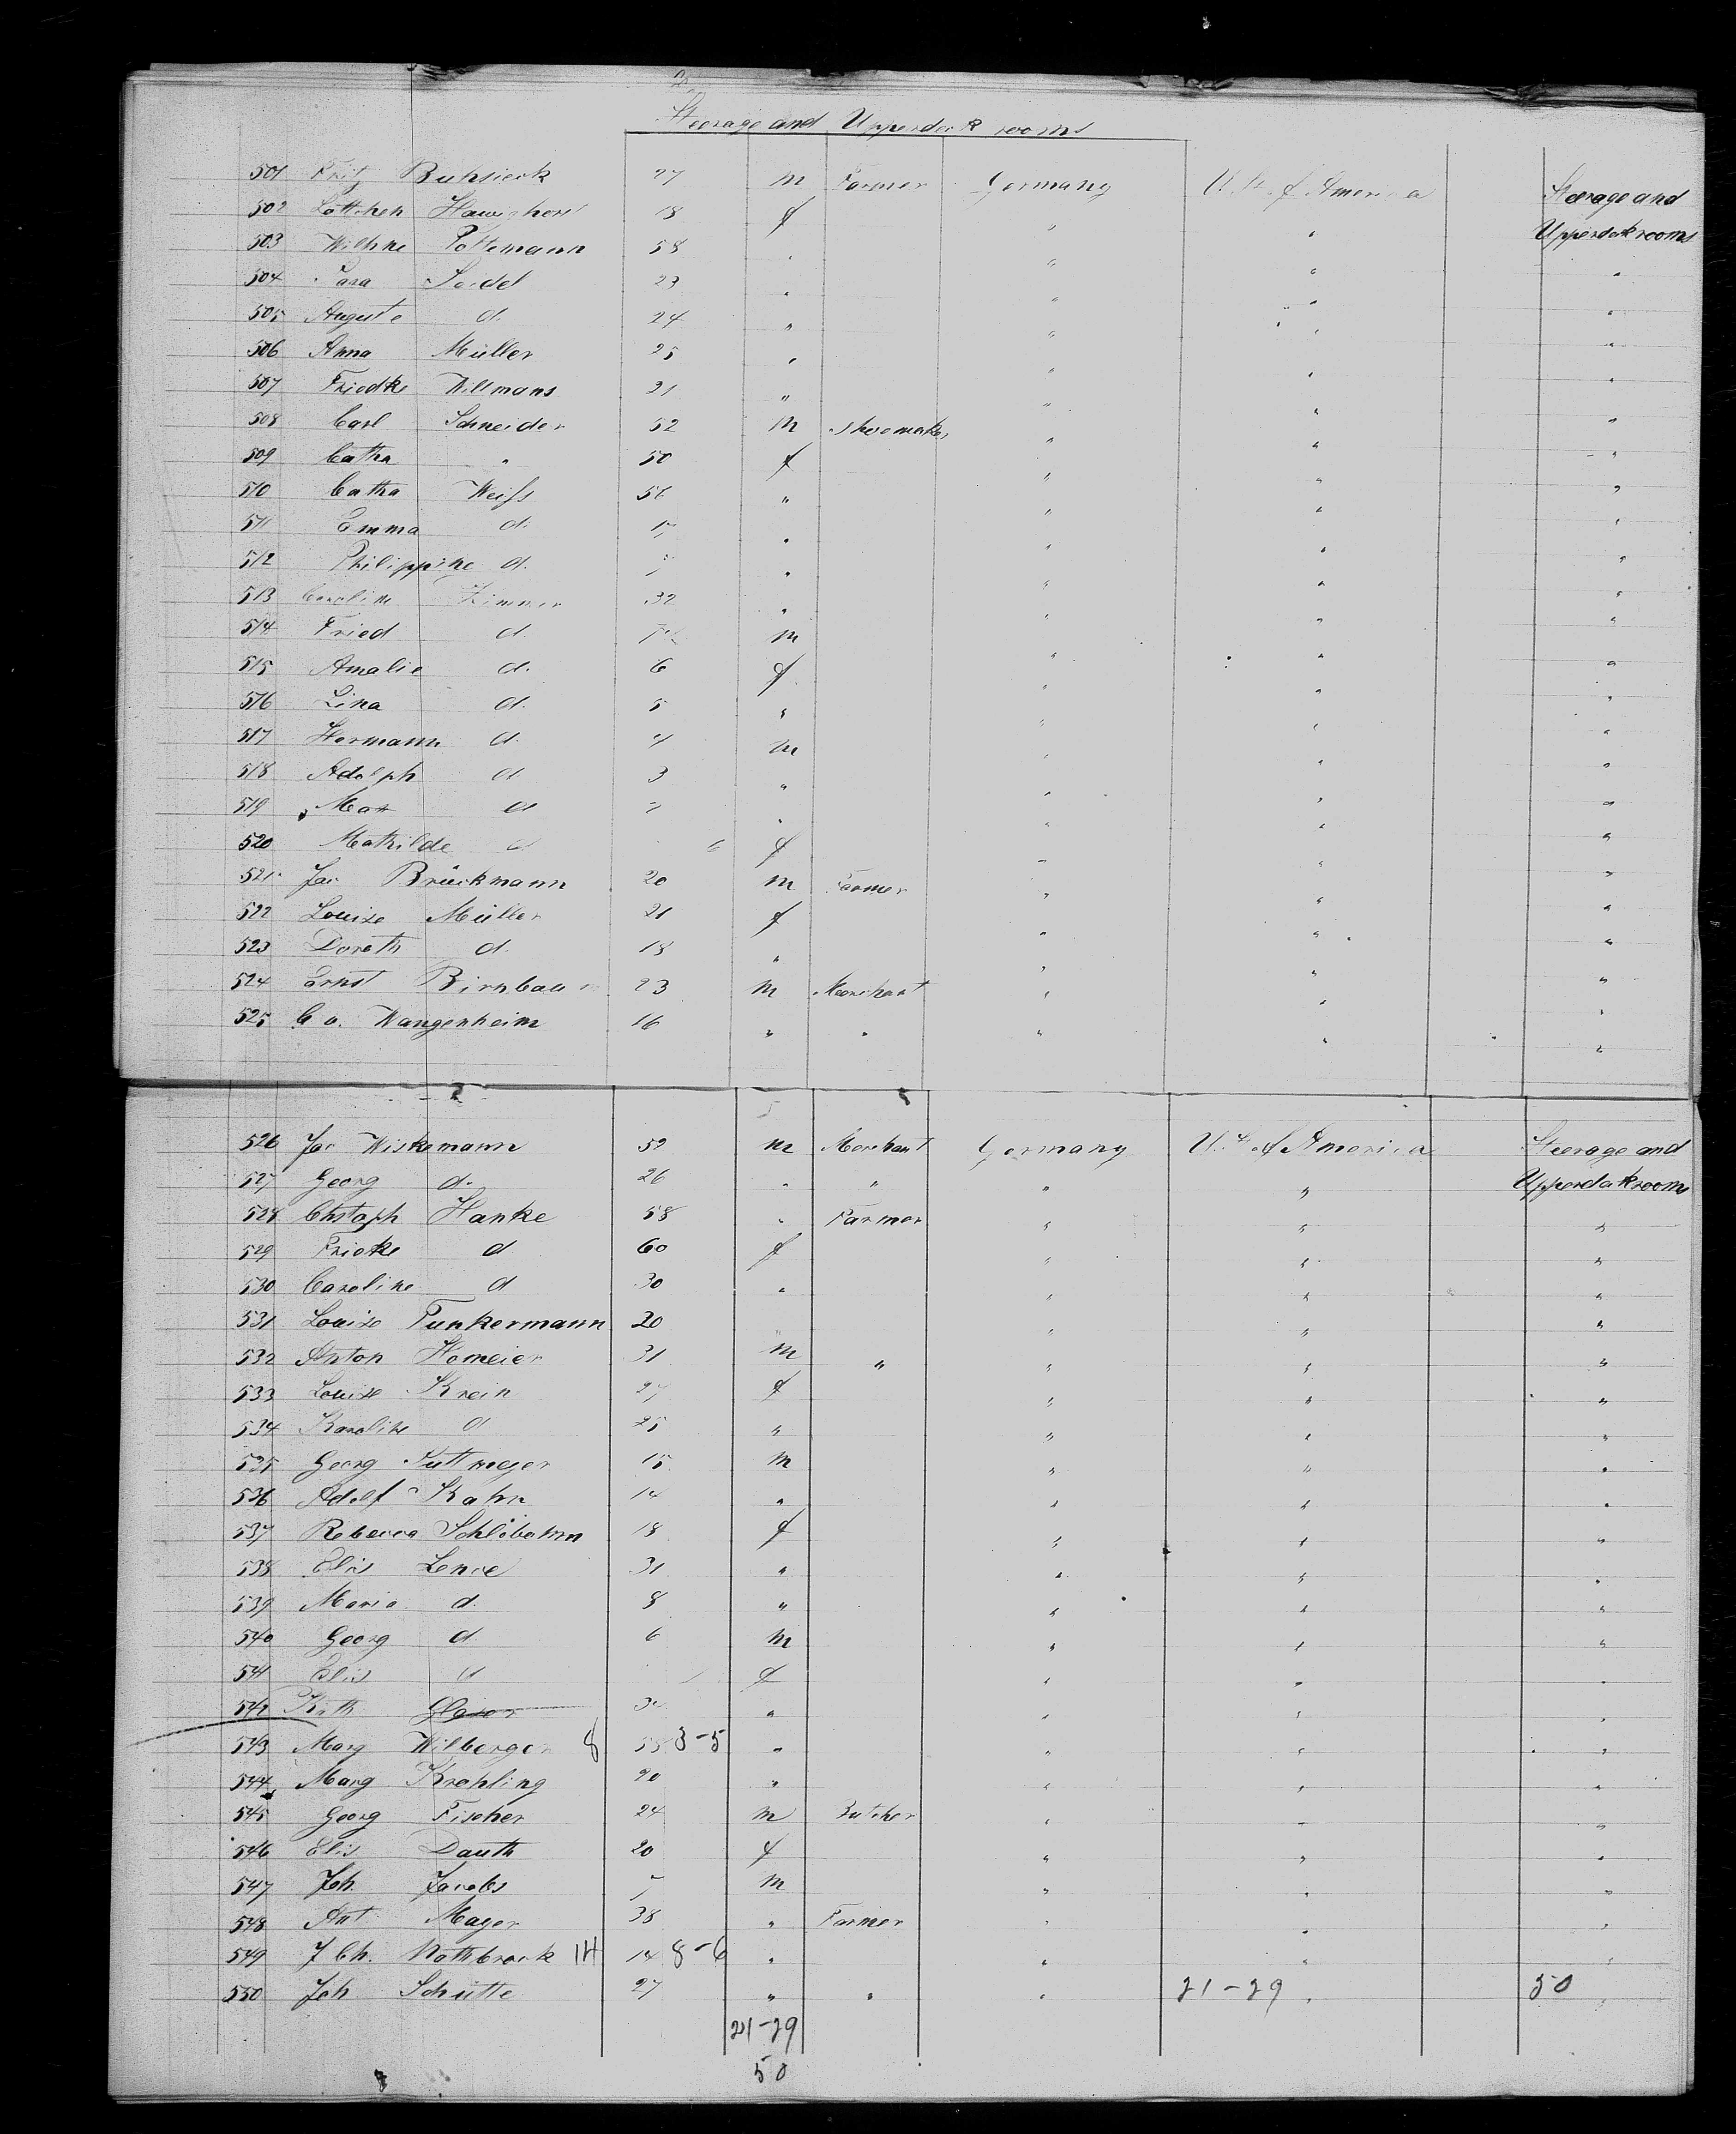 Steerage and Upperdeck rooms
501 Fritz Buhsieck 27 m Farmer Germany U. St. of America Steerage and
502 Lottchen Hawighorst 18 f " " Upperdeck rooms
503 Wilhne Pottemann 58 " " " "
504 Seidel 23 " " " "
505 Auguste d. 24 " " " "
506 Anna Müller 25 " " " "
507 Friedke Willmans 21 " " " "
508 Carl Schneider 52 m shoemaker " " "
509 Catha " 50 f " " "
510 Catha Weifs 56 " " " "
511 Emma d. " " " "
512 Philippine d. " " " "
513 Caroline Zimmer 32 " " " "
514 Fried d. m " " "
515 Amalie d. 6 f " " "
516 Lina d. 5 " " " "
517 Hermann d. 4 m " " "
518 Adolph d 3 " " " "
519 Max d " " " "
520 Mathilde d 6 f " " "
521 Jac Brückmann 20 m Farmer " " "
522 Louise Müller 21 f " " "
523 Doroth d. 18 " " " "
524 Ernst Birnbaum 23 m Merchant " " "
525 C v. Wangenheim 16 " " " " "
526 Jac Wiskemann 52 m Merchant Germany U. St. of America Steerage and
527 Georg d. 26 " " " " Upperdeck rooms
528 Chstoph Hanke 58 " Farmer " " "
529 Fricke d 60 f " " "
530 Caroline d 30 " " " "
531 Louise Funkermann 20 " " " "
532 Anton Homeier 31 m " " " "
533 Louise Krein 27 f " " "
534 Karoline d 25 " " " "
535 Georg Puttmeyer 15 m " " "
536 Adolf Kahn 14 " " " "
537 Rebecca Schlöbohm 18 f " " "
538 Elis Lence 31 " " " "
539 Maria d. 8 " " " "
540 Georg d. 6 m " " "
541 Elis d f " " "
542 Kath Glaser " " " "
543 Marg Wilberger 8 55 3-5 " " " "
544 Marg Krohling 20 " " " "
545 Georg Fischer 24 m Butcher " " "
546 Elis Dauth 20 f " " "
547 Joh. Jacobs m " " "
548 Ant Mayer 38 " Farmer " " "
549 J Ch. Nothbrock 14 14 8-6 " " " "
550 Joh Schütte 27 " " " 21-29 " 50 "
21-29
50